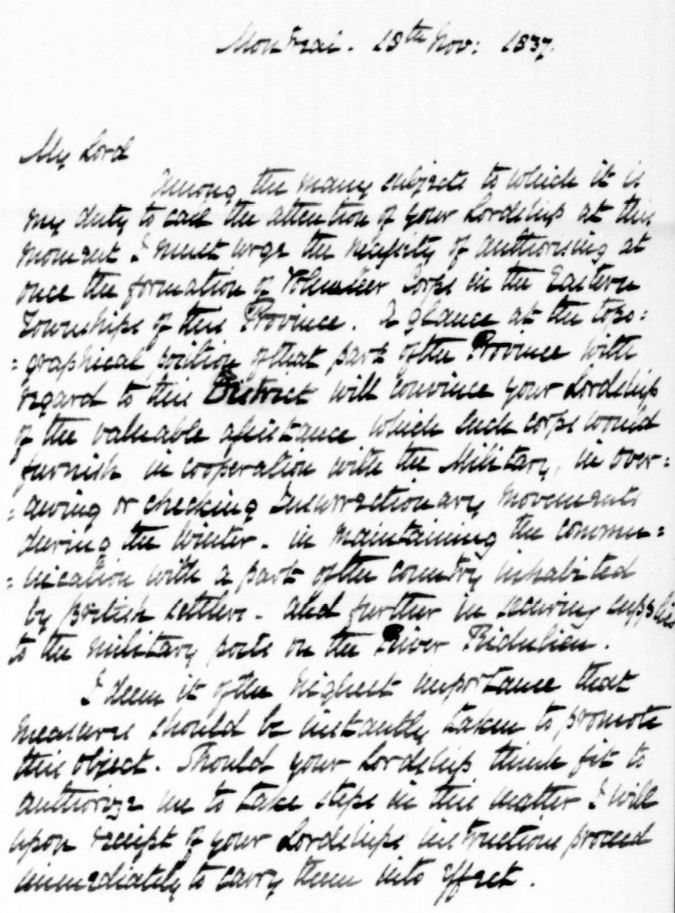 Montreal. 18th Nov: 1837.
My Lord
Among the many subjects to which it is
my duty to call the attention of your Lordship at this
moment I must urge the necessity of authorising at
once the formation of Volunteer Corps in the Eastern
Townships of this Province. A glance at the topo=
=graphical position of that part of the Province with
regard to this District will convince your Lordship
of the valuable assistance which such corps would
furnish in cooperation with the Military, in over=
=awing or checking Insurrectionary movements
during the Winter. in maintaining the commu=
=nication with a part of the country inhabited
by British settlers. and further in securing supplies
to the military posts on the River Richelieu.
I deem it of the highest importance that
measures should be instantly taken to promote
this object. Should your Lordship think fit to
authorize me to take steps in this matter I will
upon receipt of your Lordships instructions proceed
immediately to carry them into effect.